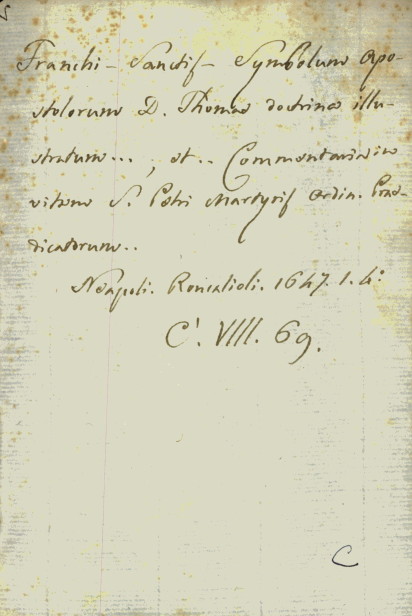 Franchi - Sanctis - Symbolum Apo-
stolorum D. Thomae doctrina illu-
stratum..., et.. Commentaria in
vitam S. Petri Martyris Ordin. Prae-
dicatorum..
Neapoli. Roncalioli. 1647. 1. 4:
C' VIII. 69.
C